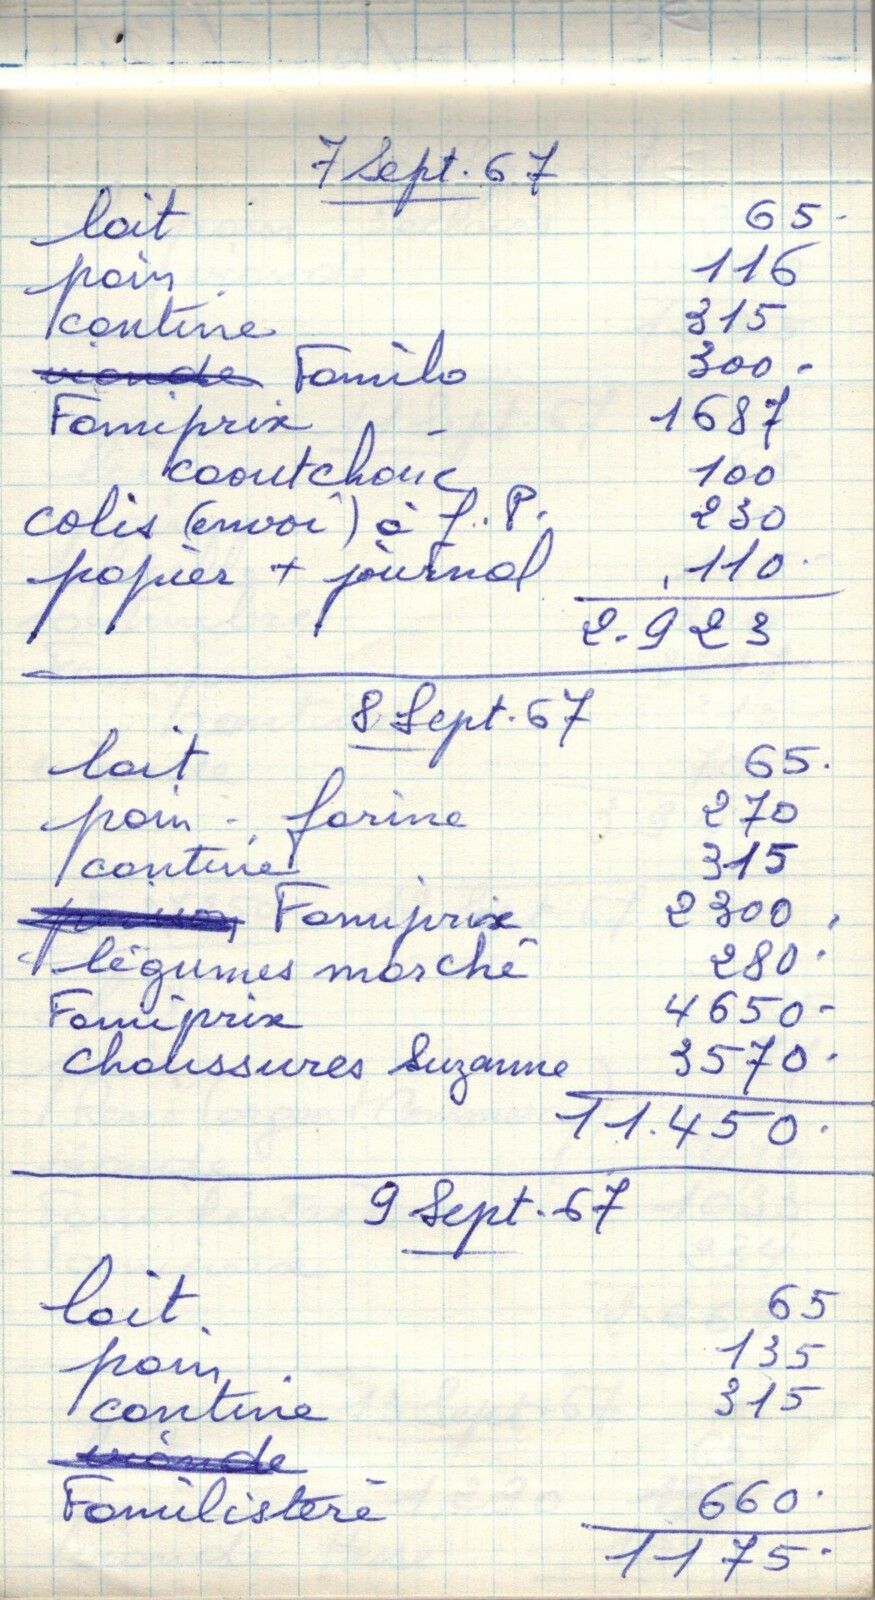 7 Sept. 67
lait 65.
pain 116
cantine 315
viande Familo 300.
Famiprix 1687
caoutchouc 100
colis (envoi) à J. P. 230
papier + journal 110.
2.923
8 Sept. 67
lait 65.
pain - farine 270
cantine 315
Famiprix 2300
légumes marché 280.
Famiprix 4650-
chaussures Suzanne 3570.
11.450.
9 Sept. 67
lait 65
pain 135
cantine 315
viande
Familistère 660.
1175.